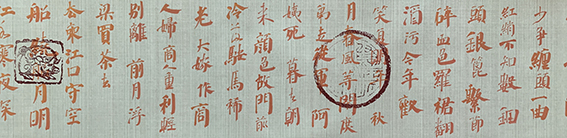 少爭纏頭一曲
紅綃不知數鈿
頭銀篦擊節
碎血色羅裙翻
酒污今年歡
笑復明年秋
月春風等閒度
弟走從軍阿
姨死暮去朝
來顏色故門前
冷落鞍馬稀
老大嫁作商
人婦商重利輕
別離前月浮
梁買茶去
去來江口守空
船月明
江水寒夜深